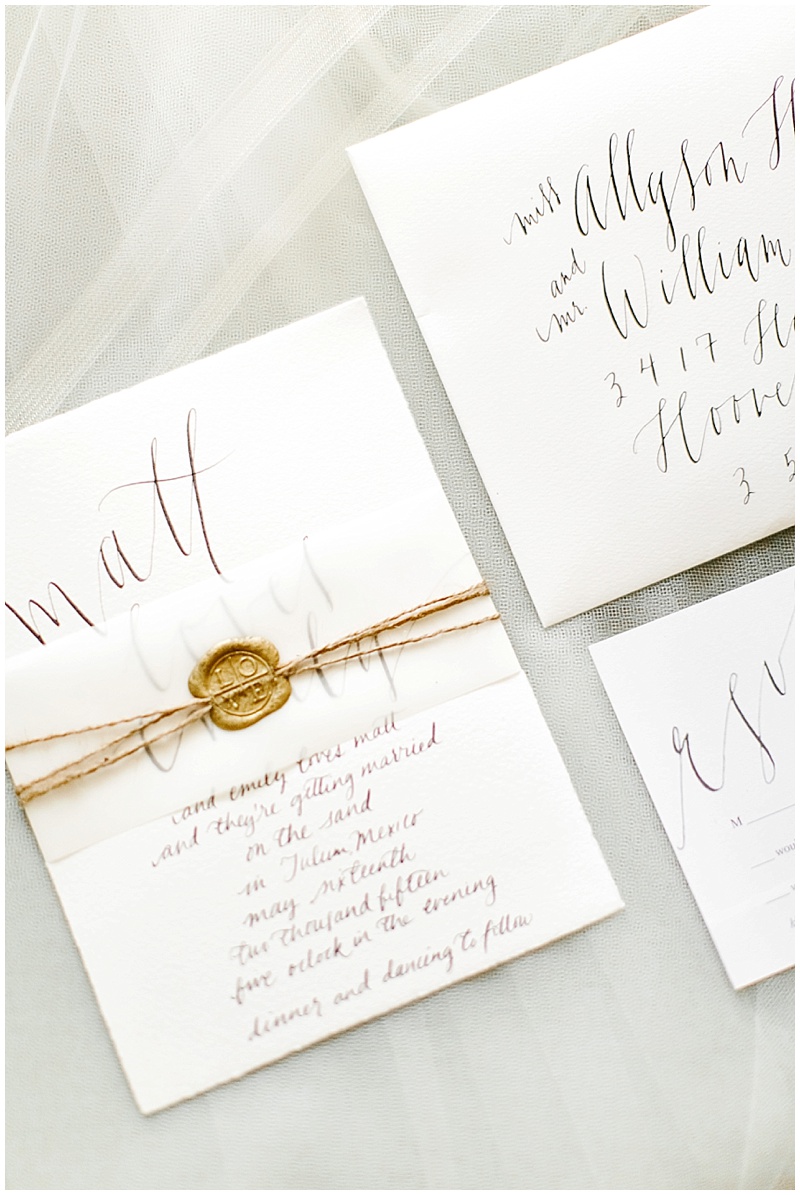 miss Allyson H
and
mr. William
3417 H
Hoove
3 5
matt
loves
emily
LO
VE
(and emily loves matt
and they're getting married
on the sand
in Tulum Mexico
may sixteenth
two thousand fifteen
five oclock in the evening
dinner and dancing to follow
rsv
M
wou